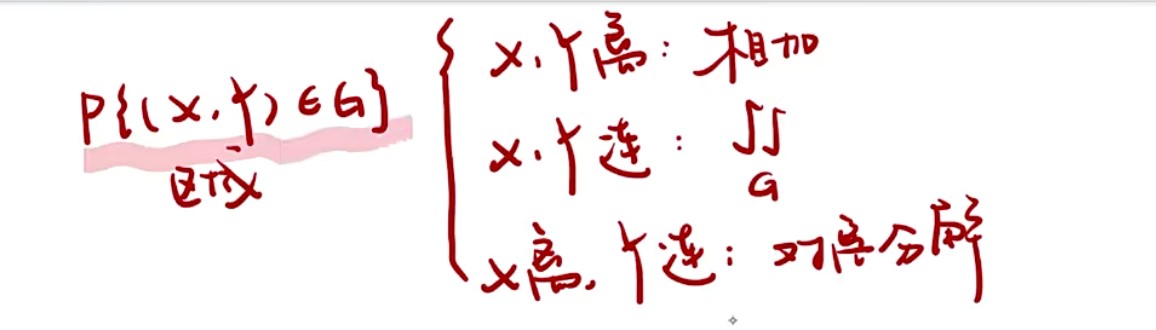 P{(X,Y)∈G}
区域
X,Y离：相加
X,Y连：∬
G
X离,Y连：对离分解